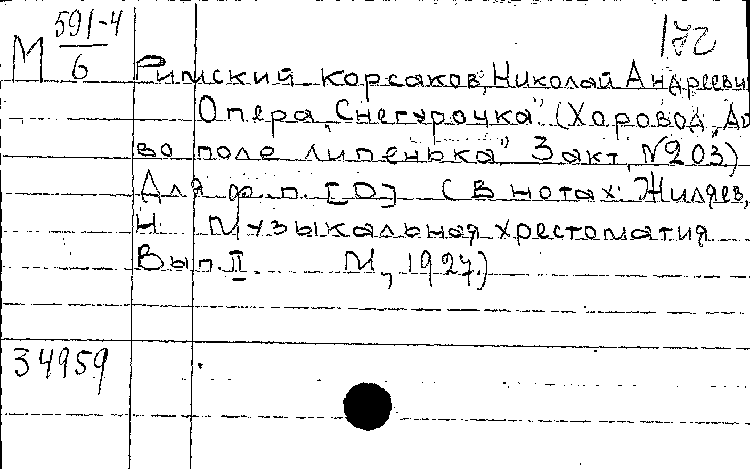 М 591-4/6
172
Римский-Корсаков, Николай Андреевич
Опера „Снегурочка". (Хоровод „Ай
во поле липенька" 3 акт, №203)
Для ф.п. [D] (В нотах: Жиляев,
Н. Музыкальная хрестоматия
Вып. II. М., 1927.)
34959